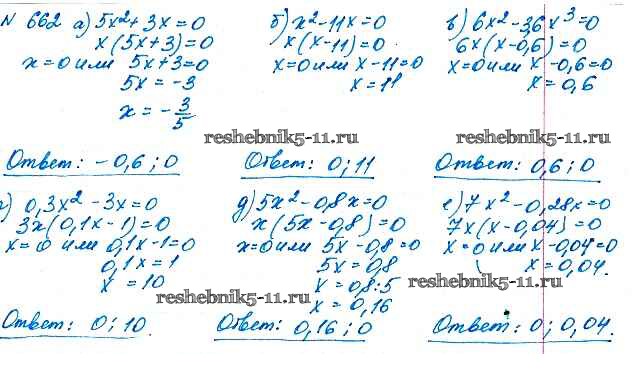 N 662 а) 5x²+3x=0
x(5x+3)=0
x=0 или 5x+3=0
5x=-3
x=-3/5
Ответ: -0,6; 0
б) x²-11x=0
x(x-11)=0
x=0 или x-11=0
x=11
Ответ: 0; 11
в) 6x²-3,6x³=0
6x(x-0,6)=0
x=0 или x-0,6=0
x=0,6
Ответ: 0,6; 0
reshebnik5-11.ru
reshebnik5-11.ru
г) 0,3x²-3x=0
3x(0,1x-1)=0
x=0 или 0,1x-1=0
0,1x=1
x=10
Ответ: 0; 10.
д) 5x²-0,8x=0
x(5x-0,8)=0
x=0 или 5x-0,8=0
5x=0,8
x=0,8:5
x=0,16
Ответ: 0,16; 0
е) 7x²-0,28x=0
7x(x-0,04)=0
x=0 или x-0,04=0
x=0,04.
Ответ: 0; 0,04.
reshebnik5-11.ru
reshebnik5-11.ru